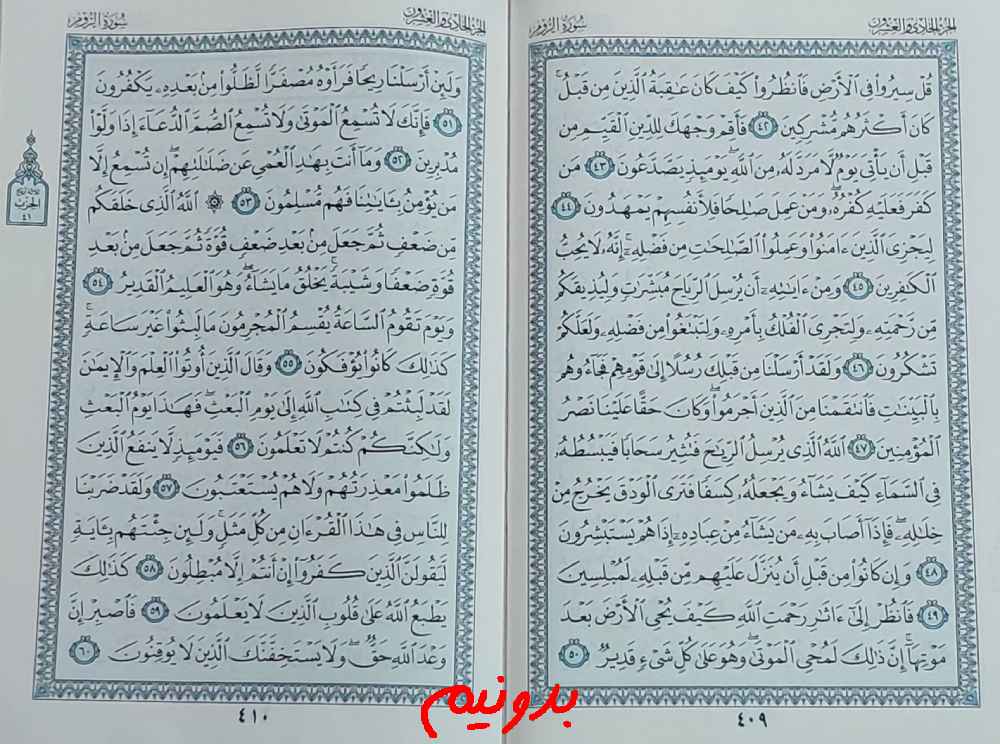 الجزء الحادي والعشرون
سورة الروم
قُلْ سِيرُوا۟ فِى ٱلْأَرْضِ فَٱنظُرُوا۟ كَيْفَ كَانَ عَـٰقِبَةُ ٱلَّذِينَ مِن قَبْلُ ۚ
كَانَ أَكْثَرُهُم مُّشْرِكِينَ ٤٢ فَأَقِمْ وَجْهَكَ لِلدِّينِ ٱلْقَيِّمِ مِن
قَبْلِ أَن يَأْتِىَ يَوْمٌ لَّا مَرَدَّ لَهُۥ مِنَ ٱللَّهِ ۖ يَوْمَئِذٍ يَصَّدَّعُونَ ٤٣ مَن
كَفَرَ فَعَلَيْهِ كُفْرُهُۥ ۖ وَمَنْ عَمِلَ صَـٰلِحًا فَلِأَنفُسِهِمْ يَمْهَدُونَ ٤٤
لِيَجْزِىَ ٱلَّذِينَ ءَامَنُوا۟ وَعَمِلُوا۟ ٱلصَّـٰلِحَـٰتِ مِن فَضْلِهِۦٓ ۚ إِنَّهُۥ لَا يُحِبُّ
ٱلْكَـٰفِرِينَ ٤٥ وَمِنْ ءَايَـٰتِهِۦٓ أَن يُرْسِلَ ٱلرِّيَاحَ مُبَشِّرَٰتٍ وَلِيُذِيقَكُم
مِّن رَّحْمَتِهِۦ وَلِتَجْرِىَ ٱلْفُلْكُ بِأَمْرِهِۦ وَلِتَبْتَغُوا۟ مِن فَضْلِهِۦ وَلَعَلَّكُمْ
تَشْكُرُونَ ٤٦ وَلَقَدْ أَرْسَلْنَا مِن قَبْلِكَ رُسُلًا إِلَىٰ قَوْمِهِمْ فَجَآءُوهُم
بِٱلْبَيِّنَـٰتِ فَٱنتَقَمْنَا مِنَ ٱلَّذِينَ أَجْرَمُوا۟ ۖ وَكَانَ حَقًّا عَلَيْنَا نَصْرُ
ٱلْمُؤْمِنِينَ ٤٧ ٱللَّهُ ٱلَّذِى يُرْسِلُ ٱلرِّيَـٰحَ فَتُثِيرُ سَحَابًا فَيَبْسُطُهُۥ
فِى ٱلسَّمَآءِ كَيْفَ يَشَآءُ وَيَجْعَلُهُۥ كِسَفًا فَتَرَى ٱلْوَدْقَ يَخْرُجُ مِنْ
خِلَـٰلِهِۦ ۖ فَإِذَآ أَصَابَ بِهِۦ مَن يَشَآءُ مِنْ عِبَادِهِۦٓ إِذَا هُمْ يَسْتَبْشِرُونَ
٤٨ وَإِن كَانُوا۟ مِن قَبْلِ أَن يُنَزَّلَ عَلَيْهِم مِّن قَبْلِهِۦ لَمُبْلِسِينَ
٤٩ فَٱنظُرْ إِلَىٰٓ ءَاثَـٰرِ رَحْمَتِ ٱللَّهِ كَيْفَ يُحْىِ ٱلْأَرْضَ بَعْدَ
مَوْتِهَآ ۚ إِنَّ ذَٰلِكَ لَمُحْىِ ٱلْمَوْتَىٰ ۖ وَهُوَ عَلَىٰ كُلِّ شَىْءٍ قَدِيرٌ ٥٠
٤٠٩
الجزء الحادي والعشرون
سورة الروم
وَلَئِنْ أَرْسَلْنَا رِيحًا فَرَأَوْهُ مُصْفَرًّا لَّظَلُّوا۟ مِنۢ بَعْدِهِۦ يَكْفُرُونَ
٥١ فَإِنَّكَ لَا تُسْمِعُ ٱلْمَوْتَىٰ وَلَا تُسْمِعُ ٱلصُّمَّ ٱلدُّعَآءَ إِذَا وَلَّوْا۟
مُدْبِرِينَ ٥٢ وَمَآ أَنتَ بِهَـٰدِ ٱلْعُمْىِ عَن ضَلَـٰلَتِهِمْ ۖ إِن تُسْمِعُ إِلَّا
مَن يُؤْمِنُ بِـَٔايَـٰتِنَا فَهُم مُّسْلِمُونَ ٥٣ ۞ ٱللَّهُ ٱلَّذِى خَلَقَكُم
مِّن ضَعْفٍ ثُمَّ جَعَلَ مِنۢ بَعْدِ ضَعْفٍ قُوَّةً ثُمَّ جَعَلَ مِنۢ بَعْدِ
قُوَّةٍ ضَعْفًا وَشَيْبَةً ۚ يَخْلُقُ مَا يَشَآءُ ۖ وَهُوَ ٱلْعَلِيمُ ٱلْقَدِيرُ ٥٤
وَيَوْمَ تَقُومُ ٱلسَّاعَةُ يُقْسِمُ ٱلْمُجْرِمُونَ مَا لَبِثُوا۟ غَيْرَ سَاعَةٍ ۚ
كَذَٰلِكَ كَانُوا۟ يُؤْفَكُونَ ٥٥ وَقَالَ ٱلَّذِينَ أُوتُوا۟ ٱلْعِلْمَ وَٱلْإِيمَـٰنَ
لَقَدْ لَبِثْتُمْ فِى كِتَـٰبِ ٱللَّهِ إِلَىٰ يَوْمِ ٱلْبَعْثِ ۖ فَهَـٰذَا يَوْمُ ٱلْبَعْثِ
وَلَـٰكِنَّكُمْ كُنتُمْ لَا تَعْلَمُونَ ٥٦ فَيَوْمَئِذٍ لَّا يَنفَعُ ٱلَّذِينَ
ظَلَمُوا۟ مَعْذِرَتُهُمْ وَلَا هُمْ يُسْتَعْتَبُونَ ٥٧ وَلَقَدْ ضَرَبْنَا
لِلنَّاسِ فِى هَـٰذَا ٱلْقُرْءَانِ مِن كُلِّ مَثَلٍ ۚ وَلَئِن جِئْتَهُم بِـَٔايَةٍ
لَّيَقُولَنَّ ٱلَّذِينَ كَفَرُوٓا۟ إِنْ أَنتُمْ إِلَّا مُبْطِلُونَ ٥٨ كَذَٰلِكَ
يَطْبَعُ ٱللَّهُ عَلَىٰ قُلُوبِ ٱلَّذِينَ لَا يَعْلَمُونَ ٥٩ فَٱصْبِرْ إِنَّ
وَعْدَ ٱللَّهِ حَقٌّ ۖ وَلَا يَسْتَخِفَّنَّكَ ٱلَّذِينَ لَا يُوقِنُونَ ٦٠
الحزب
٤١
٤١٠
بدونیم